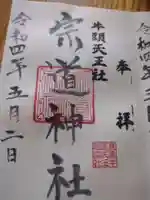 奉拝
牛頭天王社
宗道神社
令和四年五月二日
令和四年五